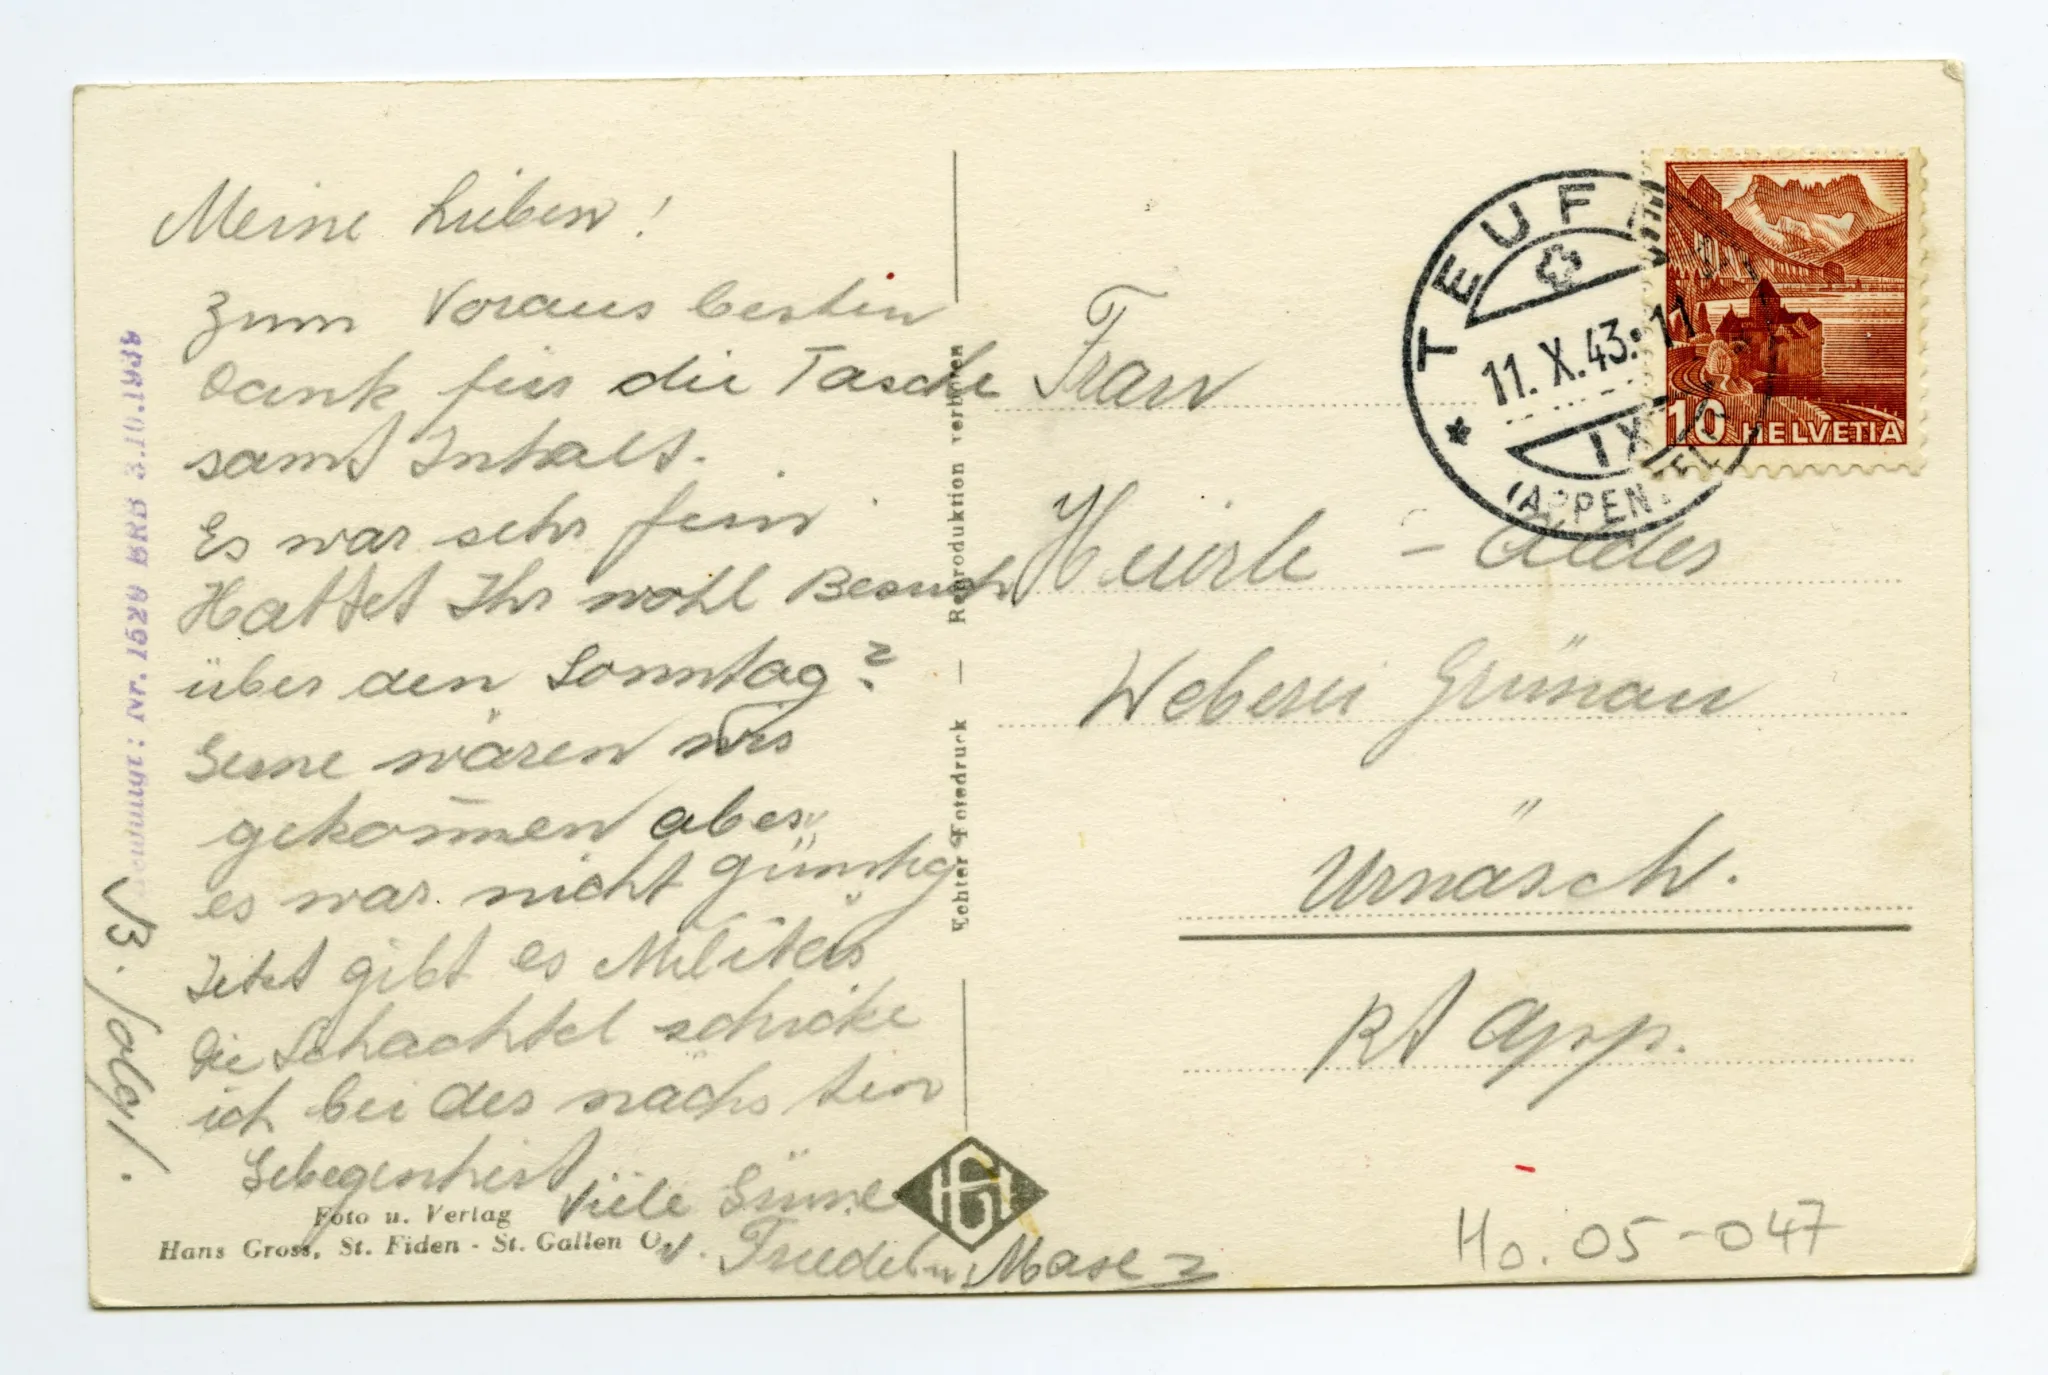 Meine Lieben!
Zum Voraus besten
Dank für die Tasche
samt Inhalt.
Es war sehr fein
Hattet Ihr wohl Besuch
über den Sonntag?
Gerne wären wir
gekom̄en aber
es war nicht günstig
Jetzt gibt es Militär
Die Schachtel schicke
ich bei der nächsten
Gelegenheit
Viele Grüsse
v. Friedel u.
B. folgt.
Bewilligt: Nr. 1529 BRB 3.10.1939
Foto u. Verlag
Hans Gross, St. Fiden - St. Gallen O
Echter Fotodruck — Reproduktion verboten
HG
TEUFEN
11.X.43.-11
IX
(APPENZELL)
10 HELVETIA
Frau
Heierle - Alder
Weberei Grünau
Urnäsch.
Kt App.
Ho. 05-047